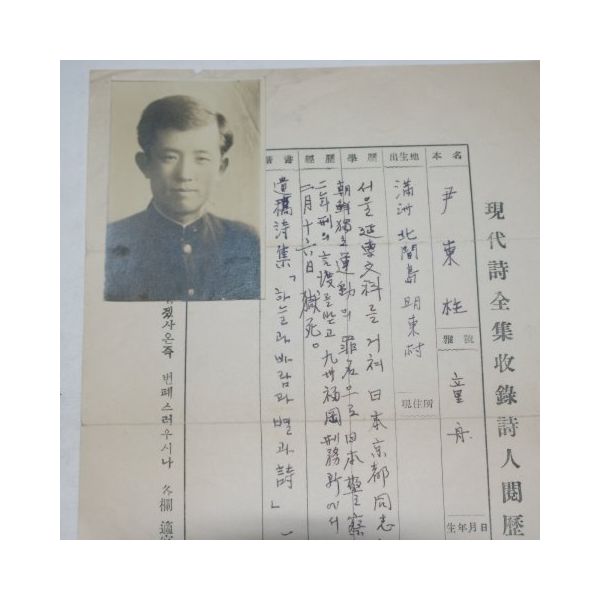 現代詩全集收錄詩人閱歷
本名
尹東柱
雅號
童舟
生年月日
出生地
滿洲 北間島 明東村
現住所
學歷
서울延專文科를 거쳐 日本京都同志
經歷
朝鮮獨立運動의 罪名으로 日本警察
二年刑의 言渡를 받고 九州福岡刑務所에서
二月十六日 獄死。
著書
遺稿詩集「하늘과 바람과 별과 詩」
사온즉 번페스러우시나 各欄